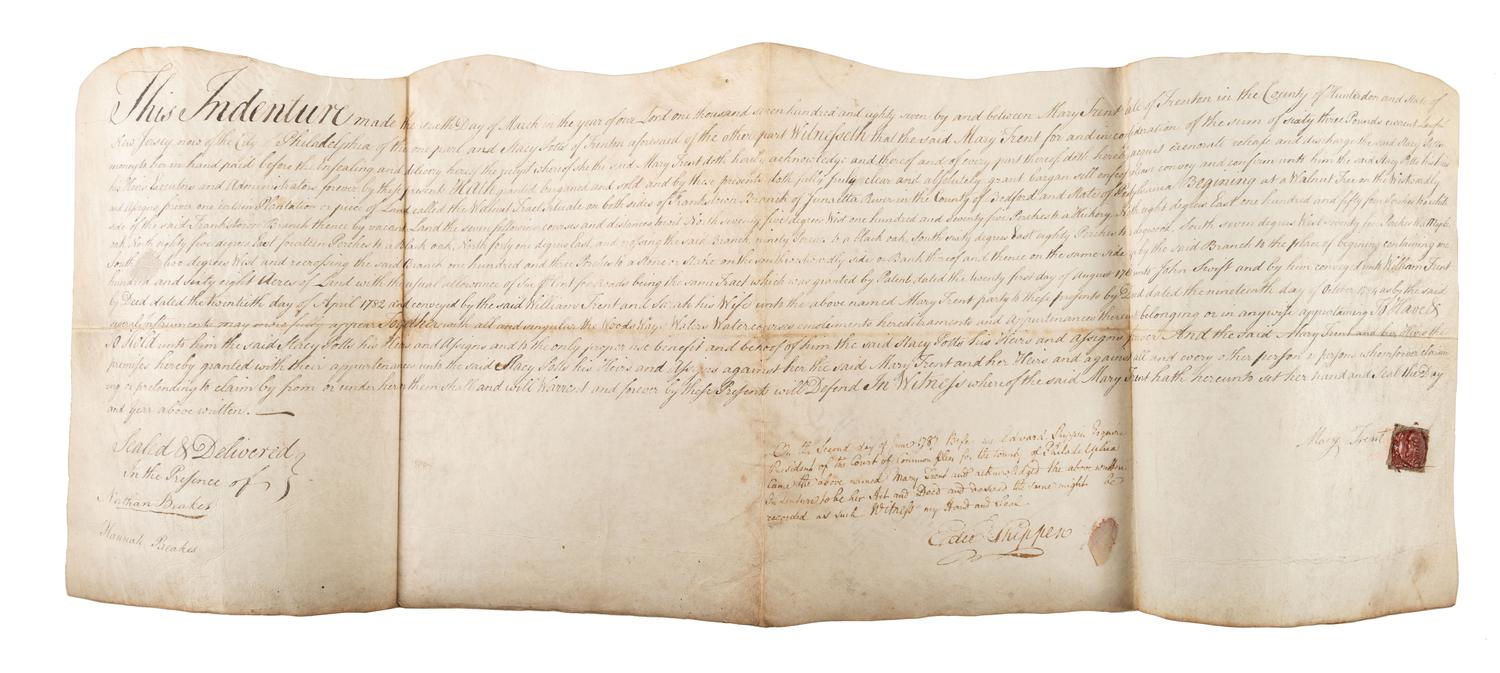 This Indenture made the sixth Day of March in the year of our Lord one thousand seven hundred and eighty seven by and between Mary Trent late of Trenton in the County of Hunterdon and State of
New Jersey now of the City of Philadelphia of the one part and Stacy Potts of Trenton aforesaid of the other part Witnesseth that the said Mary Trent for and in consideration of the sum of sixty three Pounds current lawful
money to her in hand paid before the ensealing and delivery hereof the receipt whereof she the said Mary Trent doth hereby acknowledge and thereof and of every part thereof doth hereby acquit exonerate release and discharge the said Stacy Potts
his Heirs Executors and Administrators forever by these presents Hath granted bargained and sold and by these presents doth fully freely clear and absolutely grant bargain sell enfeoff release convey and confirm unto him the said Stacy Potts his Heirs
and Assigns forever one certain Plantation or piece of Land called the Wallnut Tract situate on both sides of Frankstown Branch of Juniatta River in the County of Bedford and State of Pennsylvania Begining at a Walnut Tree on the Westwardly
side of the said Frankstown Branch thence by vacant Land the seven following courses and distances to wit North seventy five degrees West one hundred and Seventy five Perches to a Hickory North eight degrees East one hundred and fifty four Perches to a white
oak North eighty five degrees East fourteen Perches to a Black oak, North forty one degrees East, and crossing the said Branch, ninety Perches to a black oak, South sixty degrees East eighty Perches to a dogwood, South seven degrees West seventy four Perches to a Maple
South two degrees West and recrossing the said Branch one hundred and three Perches to a Stone or Stone on the southwestwardly side or Bank thereof and thence on the same side by the said Branch to the place of begining containing one
hundred and sixty eight Acres of Land with the usual allowance of Six P Cent for Roads being the same Tract which was granted by Patent dated the twenty first day of August unto John Swift and by him conveyed unto William Trent
by Deed dated the twentieth day of April 1782 and conveyed by the said William Trent and Sarah his Wife unto the above named Mary Trent party to these presents by Deed dated the nineteenth day of October 1784 as by the said
several instruments may more fully appear Together with all and singular the Woods Ways Waters Watercourses enselements hereditaments and Appurtenances thereunto belonging or in anywise appertaining To Have &
to Hold unto him the said Stacy Potts his Heirs and Assigns and to the only proper use benefit and behoof of him the said Stacy Potts his Heirs and assigns forever And the said Mary Trent and her Heirs the
premises hereby granted with their appurtenances unto the said Stacy Potts his Heirs and Assigns against her the said Mary Trent and her Heirs and against all and every other person & persons whomsoever claim
ing or pretending to claim by from or under her or them shall and will Warrent and forever by these Presents will Defend In Witness whereof the said Mary Trent hath hereunto set her hand and Seal the Day
and year above written.
Sealed & Delivered
In the Presence of
Nathan Beakes
Hannah Beakes
On the Second day of June 1787 Before me Edward Shippen Esquire
President of the Court of Common Pleas for the County of Philadelphia
Came the above named Mary Trent and acknowledged the above written
Indenture to be her Act and Deed and desired the same might be
recorded as such Witness my Hand and Seal
Edw Shippen
Mary Trent